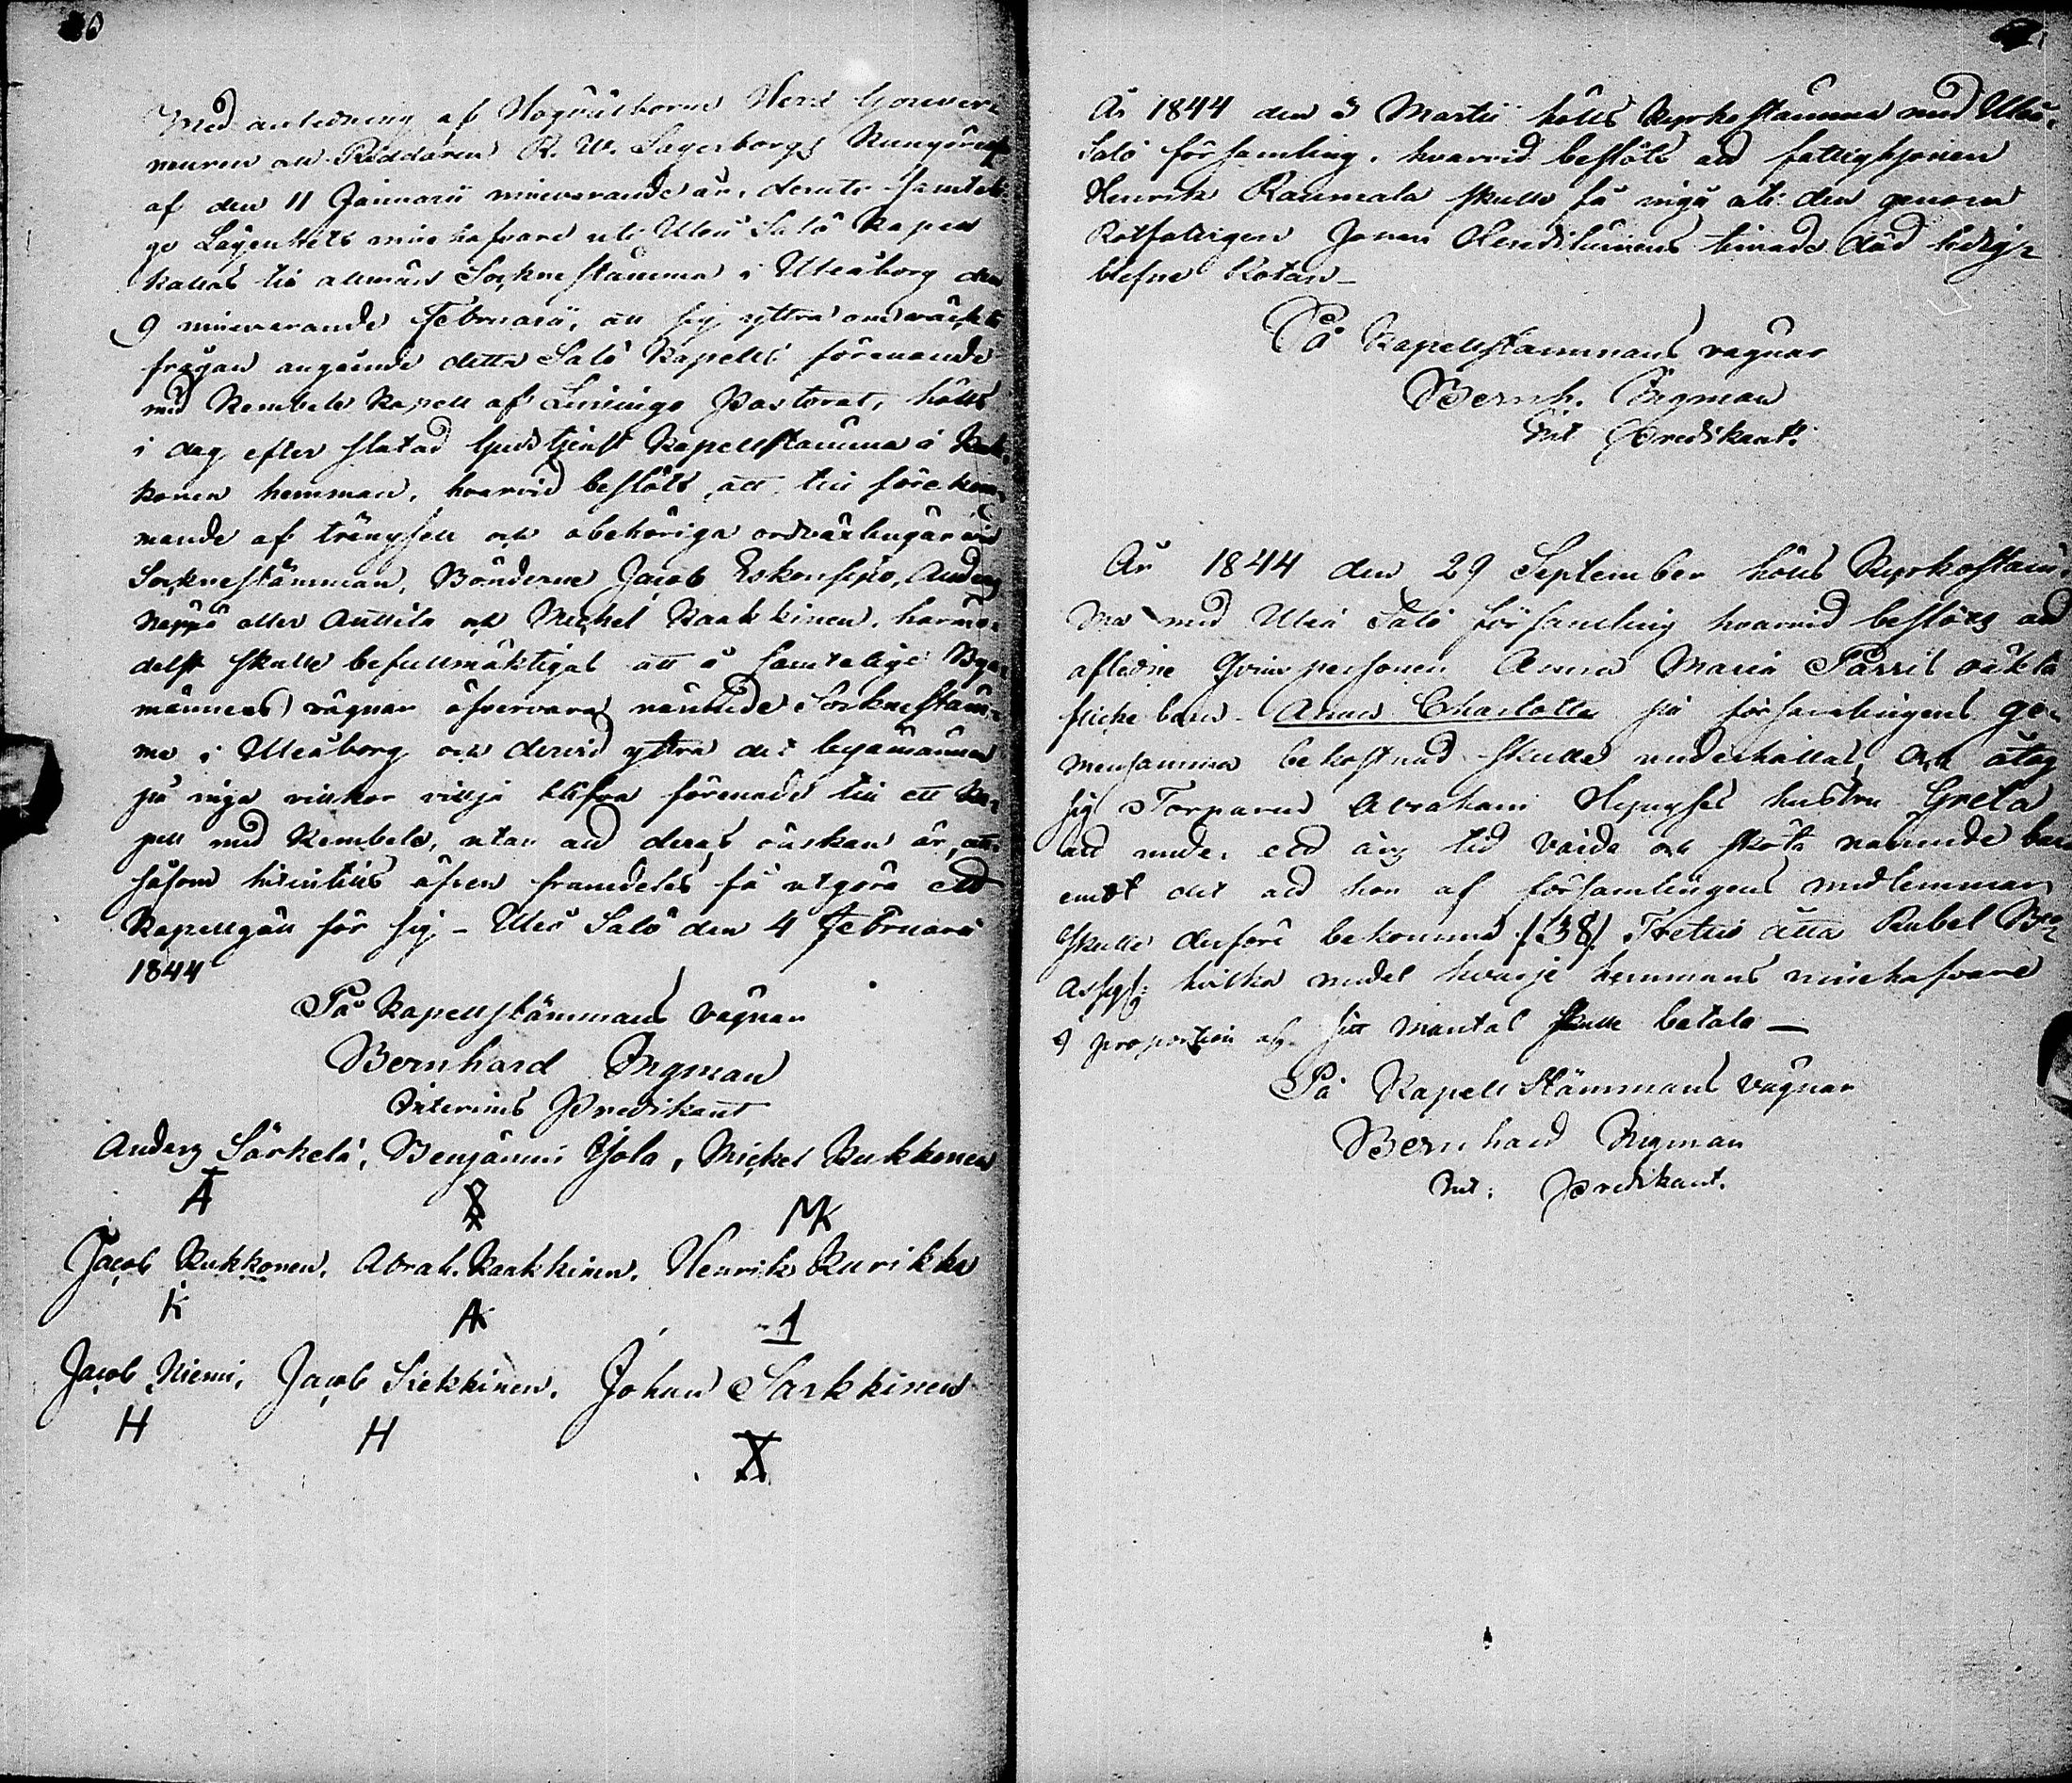 Med anledning af Högvälborne Herr Gouver-
neuren och Riddaren R. W. Lagerborgs Kungörelse
af den 11 Januarii innevarande år, deruti samteli-
ge Lägenhets innehafvare uti Uleå Salo Kapell
kallas till allmän Sockne stämma i Uleåborg den
9 innevarande Februarii, att sig yttra om väckta
frågan angående detta Salo Kapells förenande
med Kembele Kapell af Limingo Pastorat, hölls
i dag efter slutad Gudstjenst Kapellstämma å Kuk-
konen hemman, hvarvid beslöts, att till förekom-
mande af trängsell och obehöriga ordväxlingar vid
Sockne stämman, Bönderne Jacob Eskonsipo, Anders
Näppä eller Anttila och Michel Kaakkinen, härme-
delst skulle befullmäktigas att å samtelige Bya-
männens vägnar öfvervara nämnde Sockne stäm-
ma i Uleåborg och dervid yttra det byamännen
på inga vilkor villja blifva förenade till ett Ka-
pell med Kembele, utan att deras önskan är, att
såsom hitintills äfven framdeles få utgöra ett
Kapellgäll för sig – Uleå Salo den 4 Februarii
1844
På Kapellstämmans vägnar
Bernhard Ingman
Interims Predikant
Anders Särkelä, Benjamin Yola, Mickel Kukkonen
A MK
Jacob Kukkonen. Abrah. Kaakkinen. Henrik Kurikka
K AK 1
Jacob Niemi, Jacob Siekkinen. Johan Sarkkinen
H H X
År 1844 den 3 Martii hölls Kyrkostämma med Uleå-
Salo församling, hvarvid beslöts att fattighjonen
Henrik Raumala skulle få ingå uti den genom
Rotfattigen Jonas timade död ledig-
blefne Rotan –
På Kapellstämmans vägnar
Bernh. Ingman
Int Predikant.
År 1844 den 29 September hölls Kyrkostäm-
ma med Uleå Salo församling hvarvid beslöts att
aflidne Qvinspersonen Anna Maria Parris oäkta
flicke barn Anna Charlotta på församlingens ge-
mensamma bekostnad skulle underhållas och åtog
sig Torparen Abraham hustru Greta
att under ett års tid vårda och sköta nämnde barn
emot det att hon af församlingens medlemmar
skulle derföre bekomma /:38:/ Trettio åtta Rubel B:co
Assign: hvilka medel hvarje hemmans innehafvare
i proportion af sitt mantal skulle betala –
På Kapell Stämmans vägnar
Bernhard Ingman
Int: Predikant.